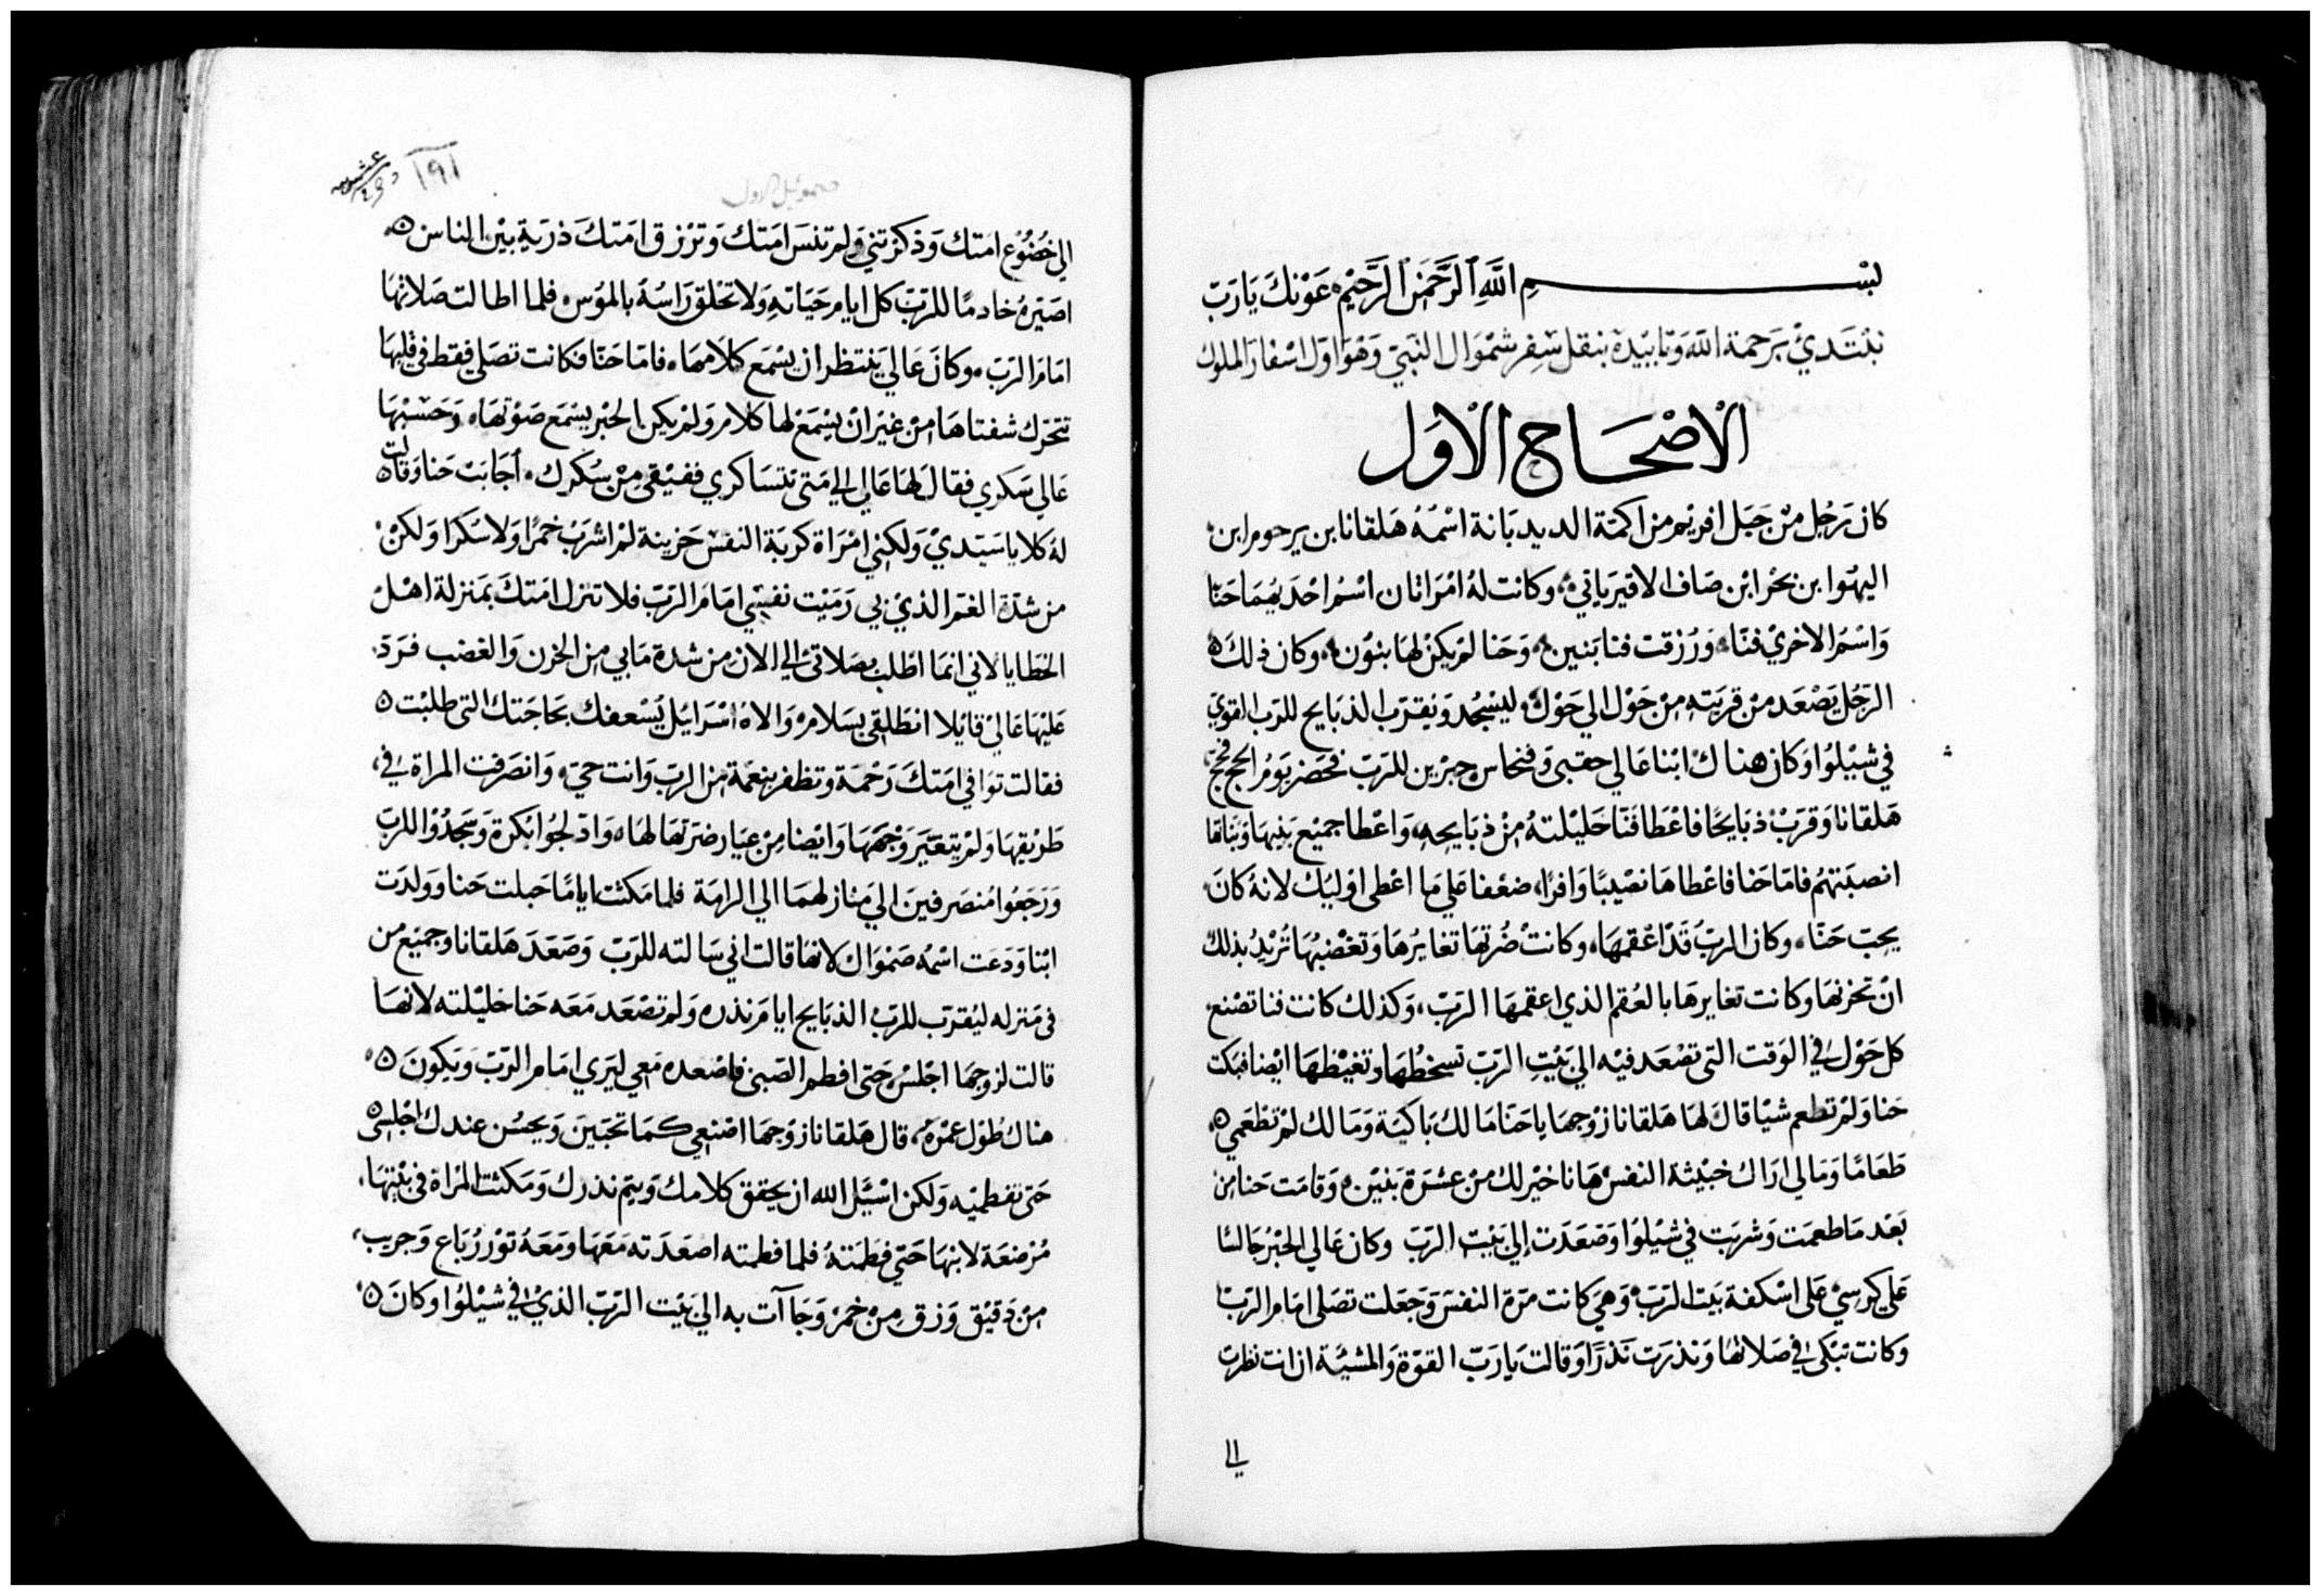 بسم الله الرحمن الرحيم عونك يا رب
نبتدئ برحمة الله وتاييده بنقل سفر شموال النبي وهو اول اسفار الملوك
الاصحاح الاول
كان رجل من جبل افريم من اكمة الديدبانة اسمه هلقانا بن يرحوم ابن
اليهوا بن بحر ابن صاف الاقيرياني وكانت له امراتان اسم احديهما حنا
واسم الاخري فنا ورزقت فنا بنين وحنا لم يكن لها بنون وكان ذلك
الرجل يصعد من قريته من حول الي حول ليسجد ويقرب الذبايح للرب القوي
في شيلوا وكان هناك ابنا عالي حقبى وفنحاس حبرين للرب فحضر يوم الحج فحج
هلقانا وقرب ذبايحا فاعطا فنا حليلته من ذبايحه واعطا جميع بنيها وبناتها
انصبتهم فاما حنا فاعطاها نصيبا وافرا ضعفا علي ما اعطى اوليك لانه كان
يحب حنا وكان الرب قد اعقمها وكانت ضرتها تغايرها وتغضبها تريد بذلك
ان تحزنها وكانت تغايرها بالعقم الذي اعقمها الرب وكذلك كانت فنا تصنع
كل حول في الوقت التى تصعد فيه الي بيت الرب تسخطها وتغيظها ايضا فبكت
حنا ولم تطعم شيا قال لها هلقانا زوجها يا حنا ما لك باكية وما لك لم تطعمي
طعاما وما لي اراك خبيثة النفس هانا خير لك من عشرة بنين وقامت حنا من
بعد ما طعمت وشربت في شيلوا وصعدت إلي بيت الرب وكان عالي الحبر جالسا
علي كرسي على اسكفة بيت الرب وهي كانت مرة النفس وجعلت تصلى امام الرب
وكانت تبكى في صلاتها ونذرت نذرا وقالت يا رب القوة والمشيئة ان انت نظرت
الي
١٩١
صموئيل الاول
الي خضوع امتك وذكرتني ولم تنس امتك وترزق امتك ذرية بين الناس
اصيره خادما للرب كل ايام حياته ولا تحلق راسه بالموس فلما اطالت صلاتها
امام الرب وكان عالي ينتظر ان يسمع كلامها فاما حنا فكانت تصلي فقط في قلبها
تتحرك شفتاها من غير ان يسمع لها كلام ولم يكن الحبر يسمع صوتها وحسبها
عالي سكري فقال لها عالي الي متى تتساكري ففيقي من سكرك اجابت حنا وقالت
له كلا يا سيدي ولكني امراة كربة النفس حزينة لم اشرب خمرا ولا سكرا ولكن
من شدة الغم الذي بي رميت نفسي امام الرب فلا تنزل امتك بمنزلة اهل
الخطايا لاني انما اطلب بصلاتي الي الان من شدة ما بي من الحزن والغضب فرد
عليها عالي قايلا انطلقي بسلام والاه اسرايل يسعفك بحاجتك التى طلبت
فقالت توافي امتك رحمة وتظفر بنعمة من الرب وانت حي وانصرفت المراة في
طريقها ولم يتغير وجهها وايضا من عيار ضرتها لها وادلجوا بكرة وسجدوا للرب
ورجعوا منصرفين الي منازلهما الي الرامة فلما مكثت اياما حبلت حنا وولدت
ابنا ودعت اسمه صموال لانها قالت اني سالته للرب وصعد هلقانا وجميع من
في منزله ليقرب للرب الذبايح ايام نذره ولم تصعد معه حنا حليلته لانها
قالت لزوجها اجلس حتى افطم الصبي فاصعده معي ليري امام الرب ويكون
هناك طول عمره قال هلقانا زوجها اصنعي كما تحبين ويحسن عندك اجلسى
حتى تفطميه ولكن اسئل الله ان يحقق كلامك ويتم نذرك ومكثت المراة في بيتها
مرضعة لابنها حتي فطمته فلما فطمته اصعدته معها ومعه ثور رباع وجريب
من دقيق وزق من خمر وجاآت به الي بيت الرب الذي في شيلوا وكان